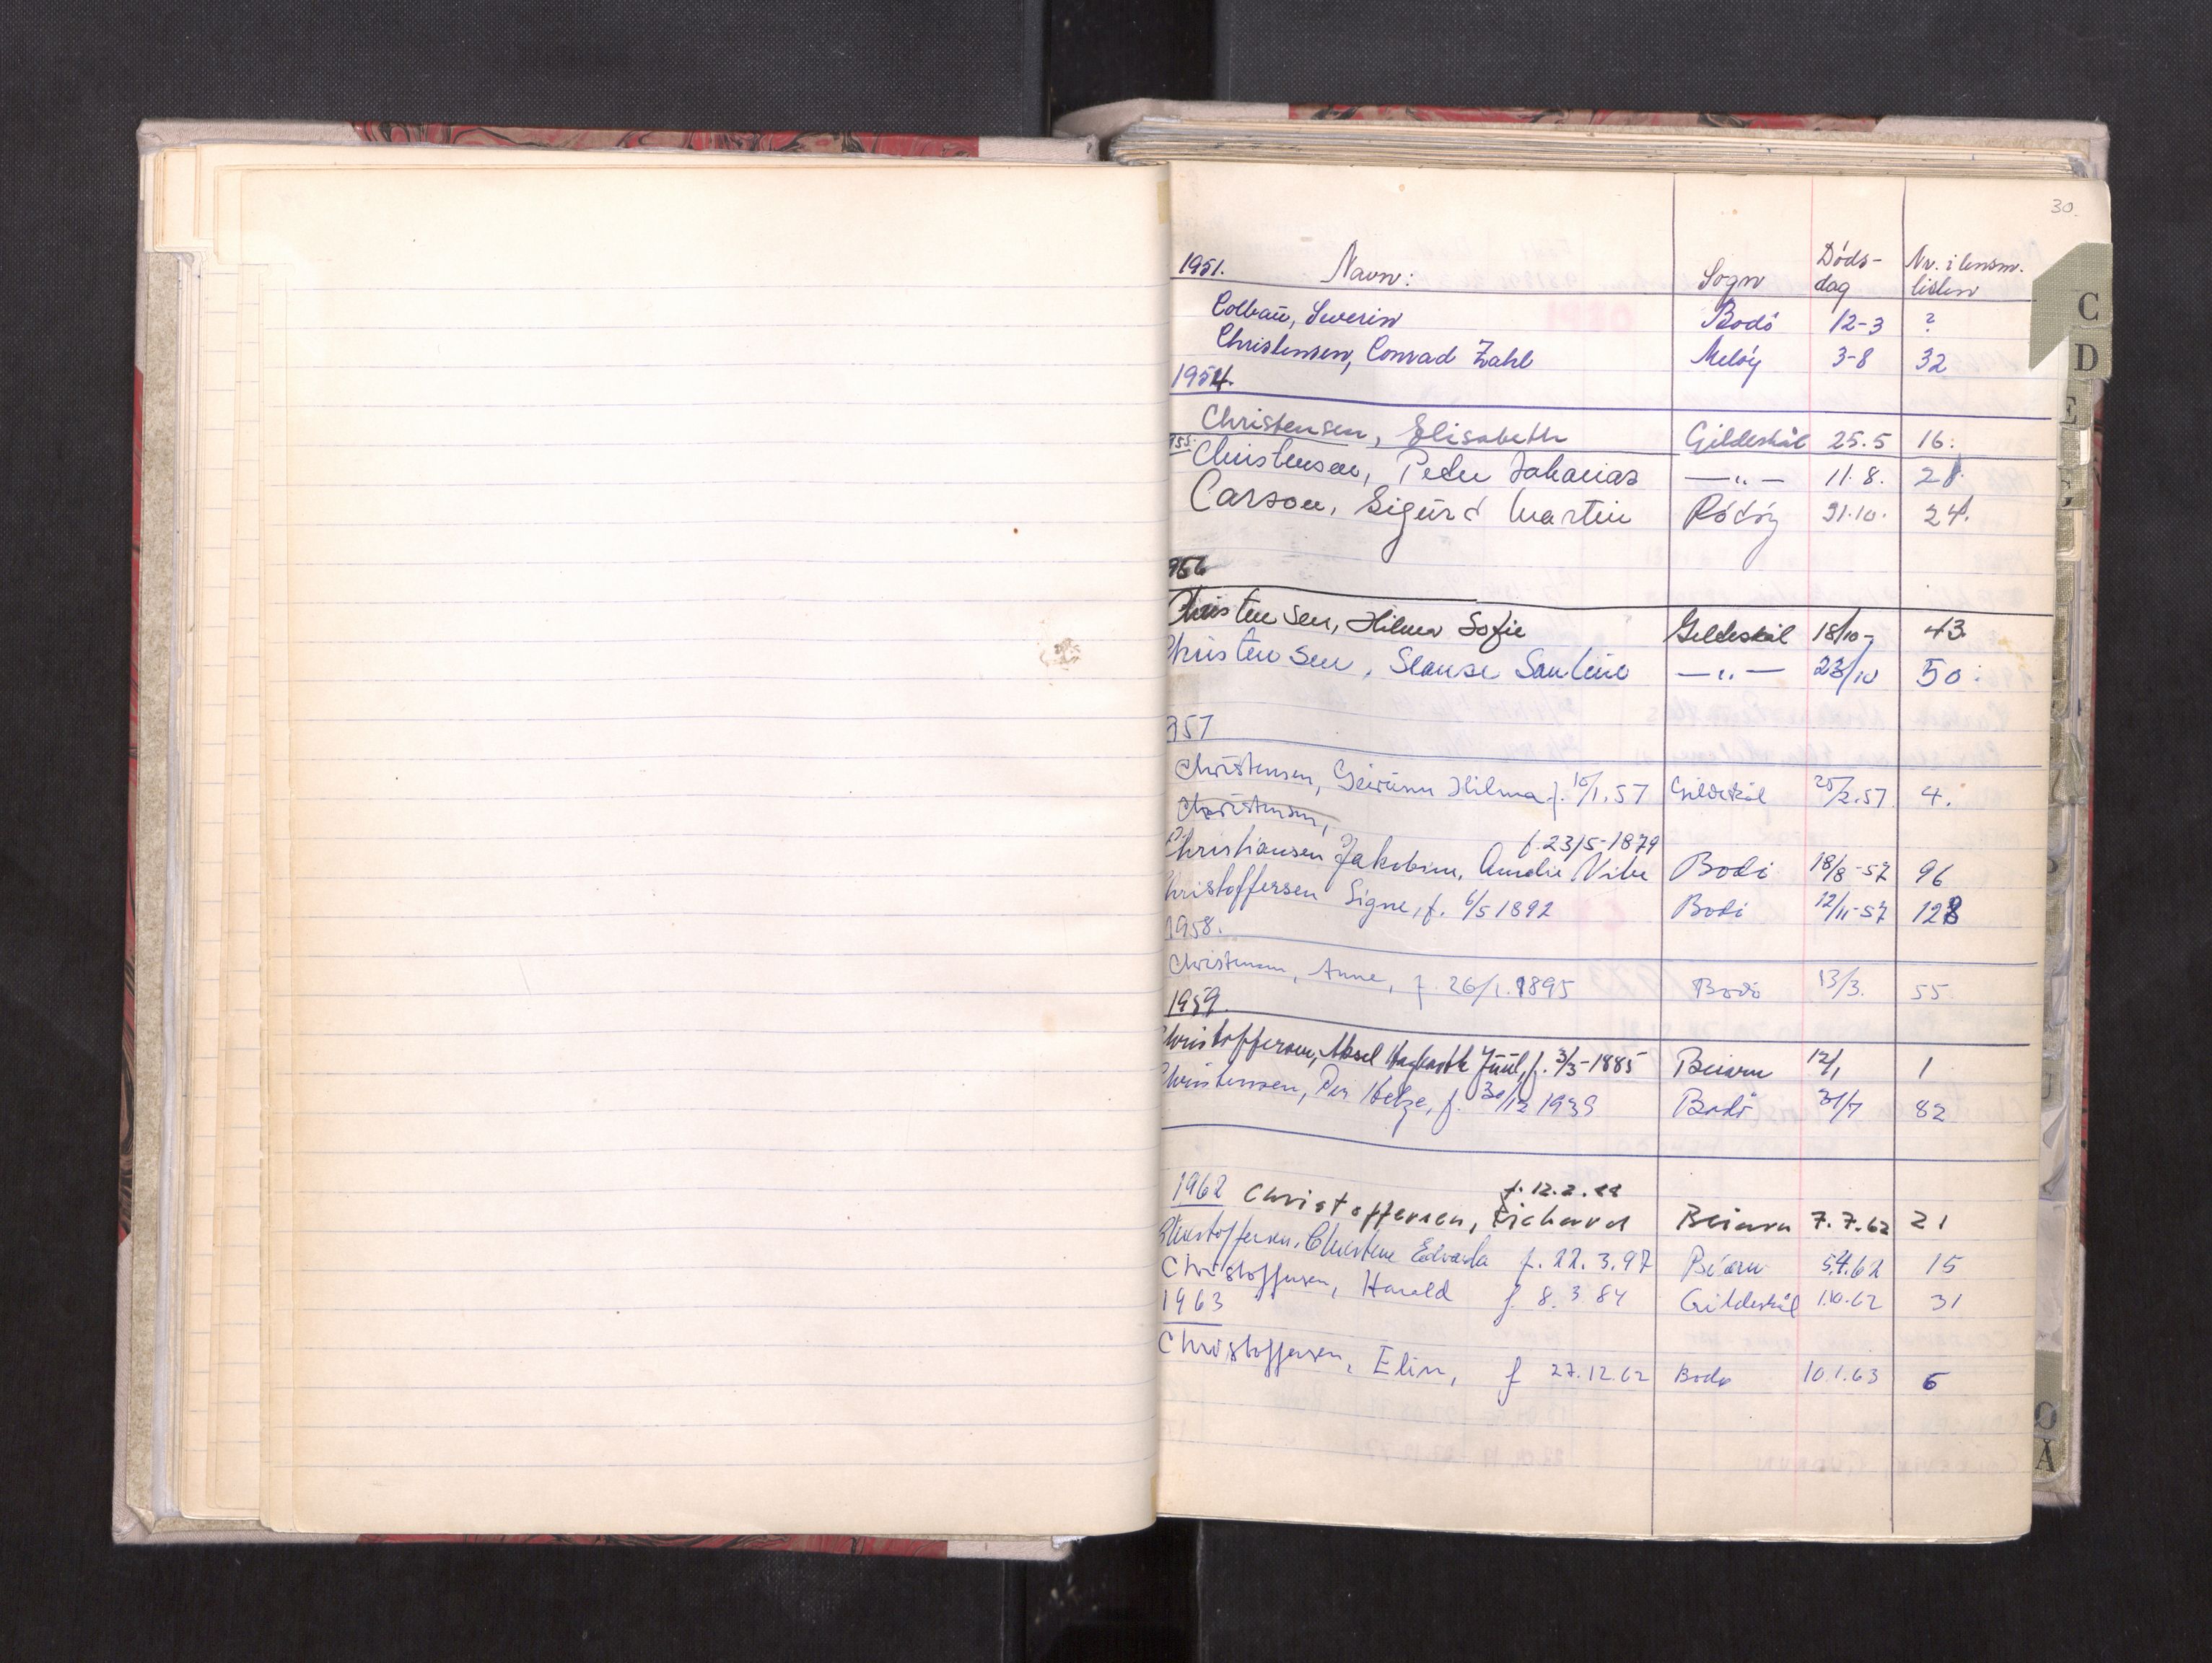 30.
1951. Navn: Sogn Døds- dag Nr. i lensm. listen
Colbaŭ, Severin Bodø 12-3 ?
Christensen, Conrad Zahl Meløy 3-8 32
1954.
Christensen, Elisabeth Gildeskål 25.5 16.
955.
Christensen, Peder Zakarias —"— 11.8. 28.
Carson, Sigurd Martin Rødøy 31.10. 24.
956
Christensen, Hilma Sofie Gildeskål 18/10- 43.
Christensen, —"— 23/10 50.
957
Christensen, Geirŭnn Hilma f. 15/1.57 Gildeskål 25/2.57. 4.
Christensen,
f. 23/5-1879
Christiansen Jakobine, Amalie Vibe Bodø 18/8-57 96
Christoffersen Signe, f. 6/5 1892 Bodø 12/11-57 128
1958.
Christensen, Anne, f. 26/1.1895 Bodø 13/3. 55
1959.
Christoffersen, Aksel Jŭŭl, f. 3/3-1885 Beiarn 12/1 1
Christensen, Per Helge, f. 30/12 1939 Bodø 31/7 82
f. 12.2.88
1962 Christoffersen, Richard Beiarn 7.7.62 21
Christoffersen, Christine Edvarda f. 22.3.97 Beiarn 5.4.62 15
Christoffersen, Harald f. 8.3.84 Gildeskål 1.10.62 31
1963
Christoffersen, Elin, f 27.12.62 Bodø 10.1.63 6
C
D
E
O
Å